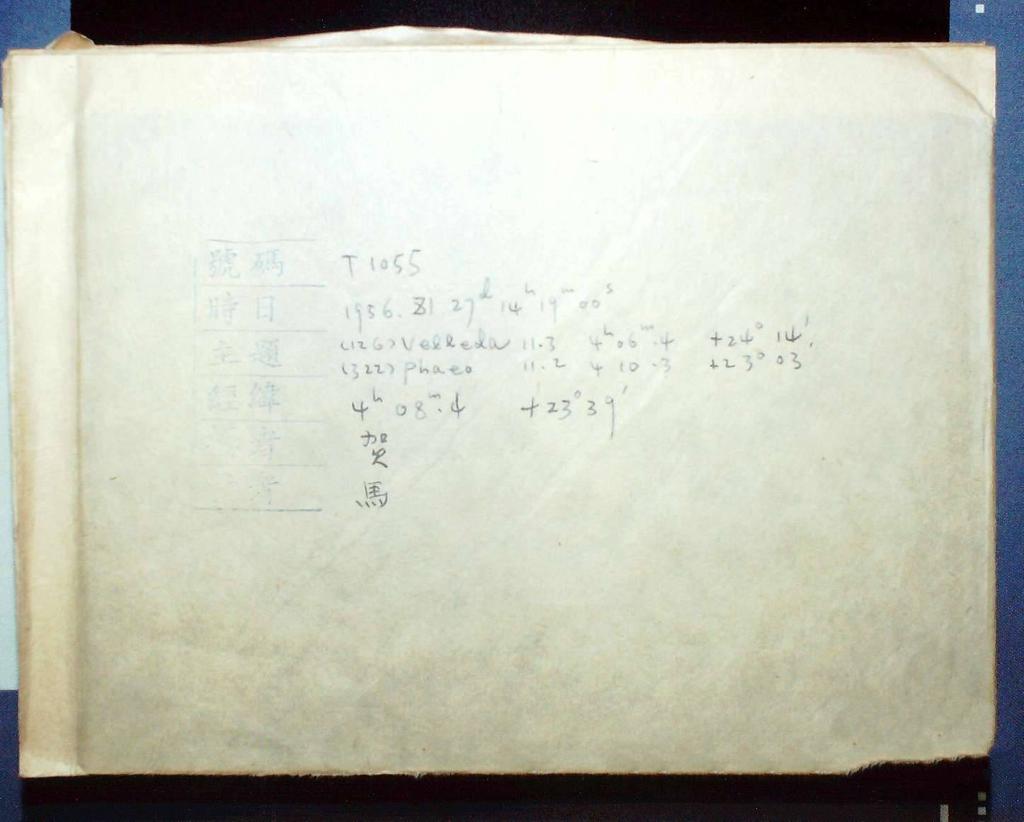 號碼 T 1055
時日 1956. XI 27ᵈ 14ʰ 19ᵐ 00ˢ
主題 (126) Velleda 11.3 4ʰ 06ᵐ.4 +24° 14'
(322) Phaeo 11.2 4 10.3 +23° 03
經緯 4ʰ 08ᵐ.4 +23° 39'
者 賀
者 馬